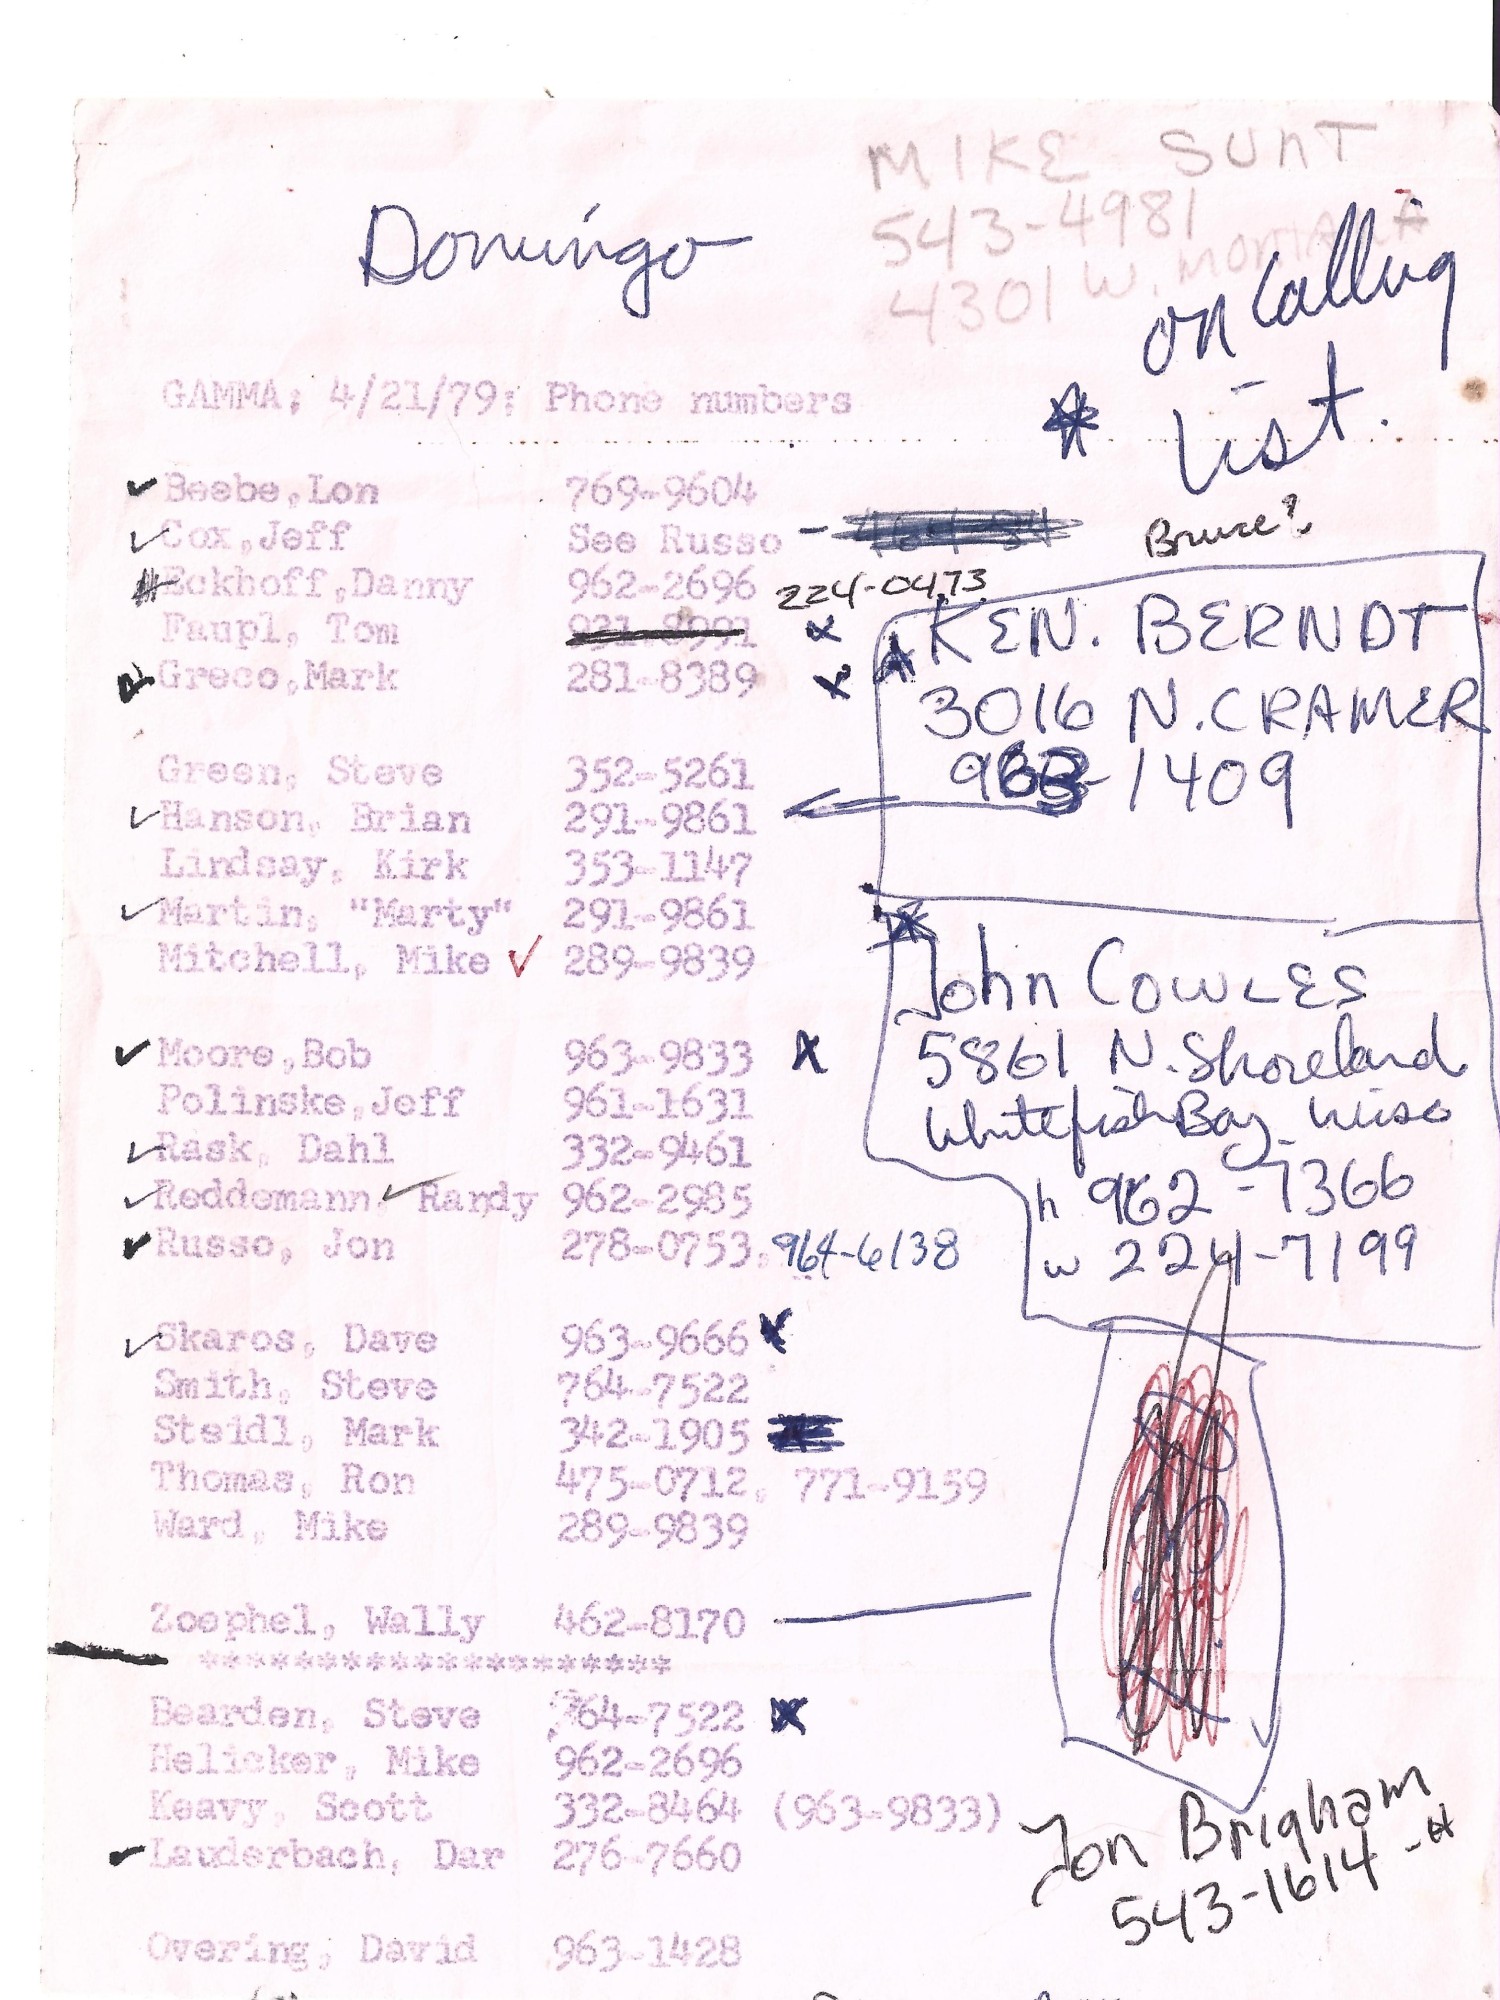 MIKE SUNT
543-4981
4301 W. MONTANA
Domingo
on Calling
List.
GAMMA; 4/21/79; Phone numbers
Beebe, Lon 769-9604
Cox, Jeff See Russo -
Bruce?
Eckhoff, Danny 962-2696
224-0473
Faupl, Tom 931-8991 x
Greco, Mark 281-8389 x
KEN. BERNDT
3016 N. CRAMER
963-1409
Green, Steve 352-5261
Hanson, Brian 291-9861
Lindsay, Kirk 353-1147
Martin, "Marty" 291-9861
Mitchell, Mike 289-9839
John COWLES
5861 N. Shoreland
Whitefish Bay Wisc
h 962-7366
w 224-7199
Moore, Bob 963-9833 x
Polinske, Jeff 961-1631
Rask, Dahl 332-9461
Reddemann, Randy 962-2985
Russo, Jon 278-0753, 964-6138
Skaros, Dave 963-9666 x
Smith, Steve 764-7522
Steidl, Mark 342-1905
Thomas, Ron 475-0712, 771-9159
Ward, Mike 289-9839
Zoephel, Wally 462-8170
********************
Bearden, Steve 764-7522 x
Helicker, Mike 962-2696
Keavy, Scott 332-8464 (963-9833)
Lauderbach, Dar 276-7660
Jon Brigham
543-1614 -H
Overing, David 963-1428